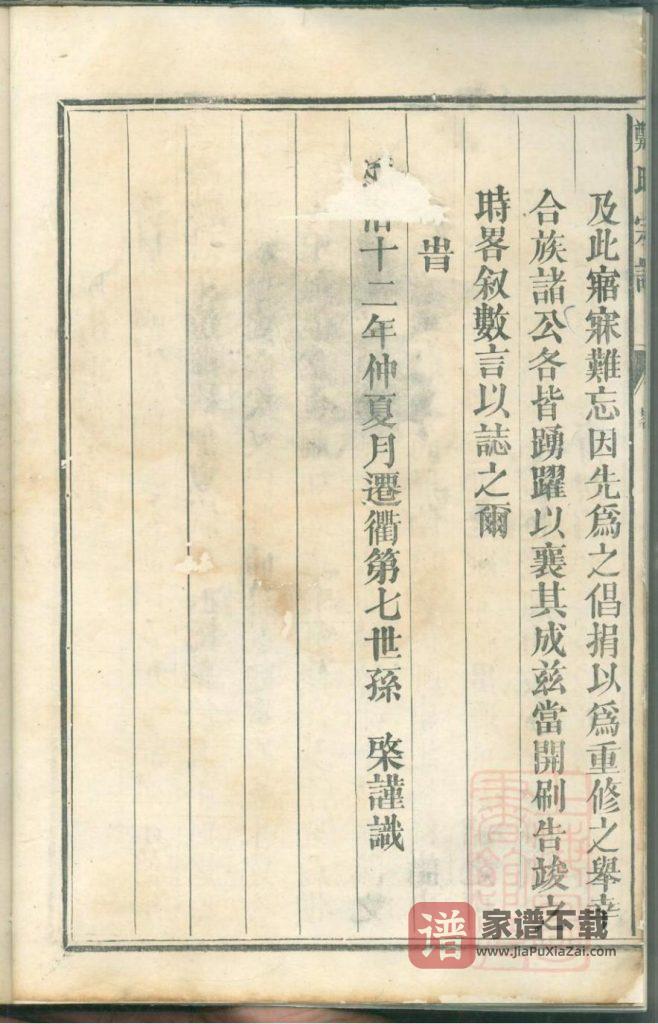 鄭氏宗譜
及此寤寐難忘因先爲之倡捐以爲重修之舉幸
合族諸公各皆踴躍以襄其成兹當開刷告竣之
時畧叙數言以誌之爾
旹
治十二年仲夏月遷衢第七世孫 棨謹識
谱
家谱下载
www.JiaPuXiaZai.com